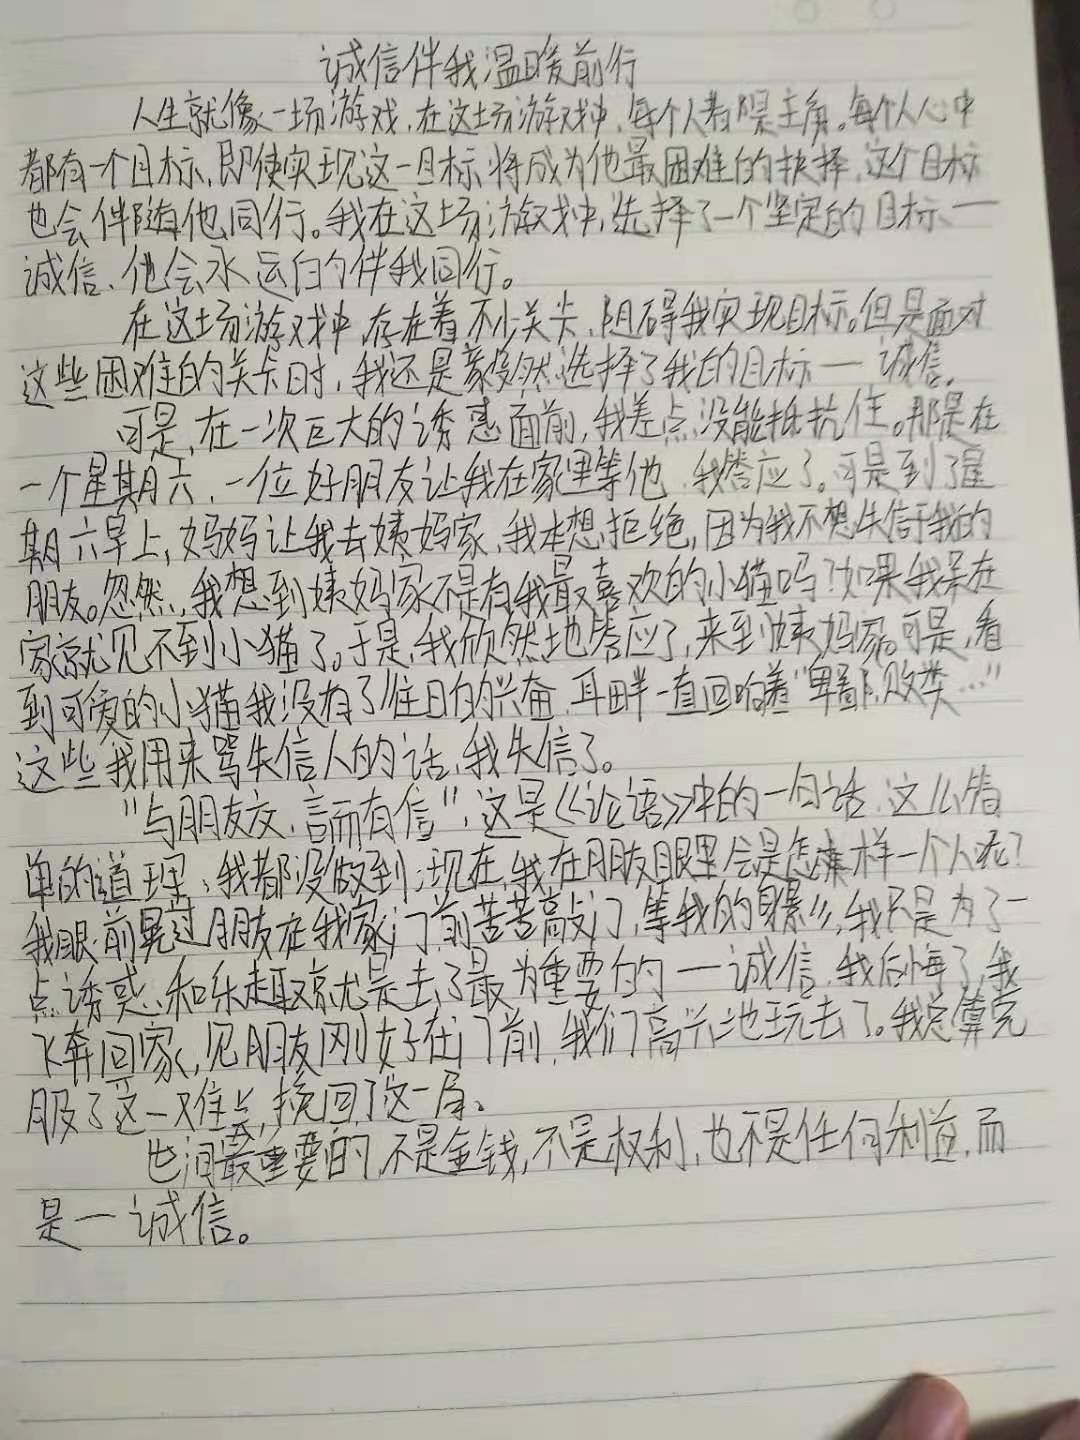 诚信伴我温暖前行
人生就像一场游戏,在这场游戏中,每个人都是主角。每个人心中
都有一个目标,即使实现这一目标将成为他最困难的抉择,这个目标
也会伴随他同行。我在这场游戏中,选择了一个坚定的目标一
诚信、他会永远的伴我同行。
在这场游戏中,存在着不少关卡,阻碍我实现目标。但是面对
这些困难的关卡时,我还是毅然选择了我的目标一诚信。
可是,在一次巨大的诱惑面前,我差点没能抵抗住。那是在
一个星期六,一位好朋友让我在家里等他,我答应了。可是到了星
期六早上,妈妈让我去姨妈家,我本想拒绝,因为我不想失信于我的
朋友。忽然,我想到姨妈家不是有我最喜欢的小猫吗?如果我呆在
家就见不到小猫了。于是,我欣然地答应了,来到姨妈家。可是,看
到可爱的小猫我没有了往日的兴奋,耳畔一直回响着“卑鄙、败类…”
这些我用来骂失信人的话,我失信了。
“与朋友交,言而有信”,这是《论语》中的一句话,这么简
单的道理,我都没做到,现在,我在朋友眼里会是怎样一个人呢?
我眼前晃过朋友在我家门前苦苦敲门,等我的身影,我只是为了一
点诱惑、和乐趣就是去了最为重要的一诚信,我后悔了,我
飞奔回家,见朋友刚好在门前,我们高兴地玩去了。我总算克
服了这一难关,挽回了这一局。
世间最重要的,不是金钱,不是权利,也不是任何利益,而
是一诚信。